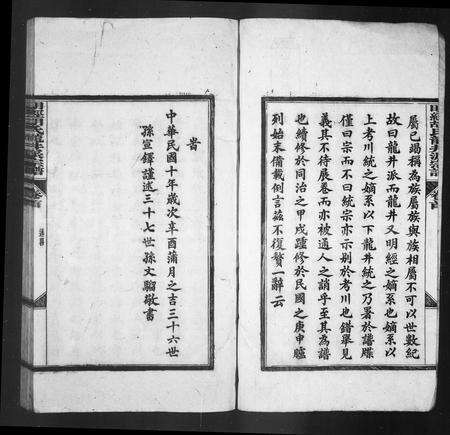 明經胡氏龍井派宗譜
卷首
屬已竭稱為族屬族與族相屬不可以世數紀
故曰龍井派而龍井又明經之嫡系也嫡系以
上考川統之嫡系以下龍井統之乃署於譜牒
僅曰宗而不曰統宗亦示别於考川也錯舉見
義其不待展卷而亦被通人之誚乎至其為譜
也續修於同治之甲戌踵修於民國之庚申臚
列始末備載例言茲不復贅一辭云
旹
中華民國十年歲次辛酉蒲月之吉三十六世
孫宣鐸謹述三十七世孫文騊敬書
明經胡氏龍井派宗譜
卷首